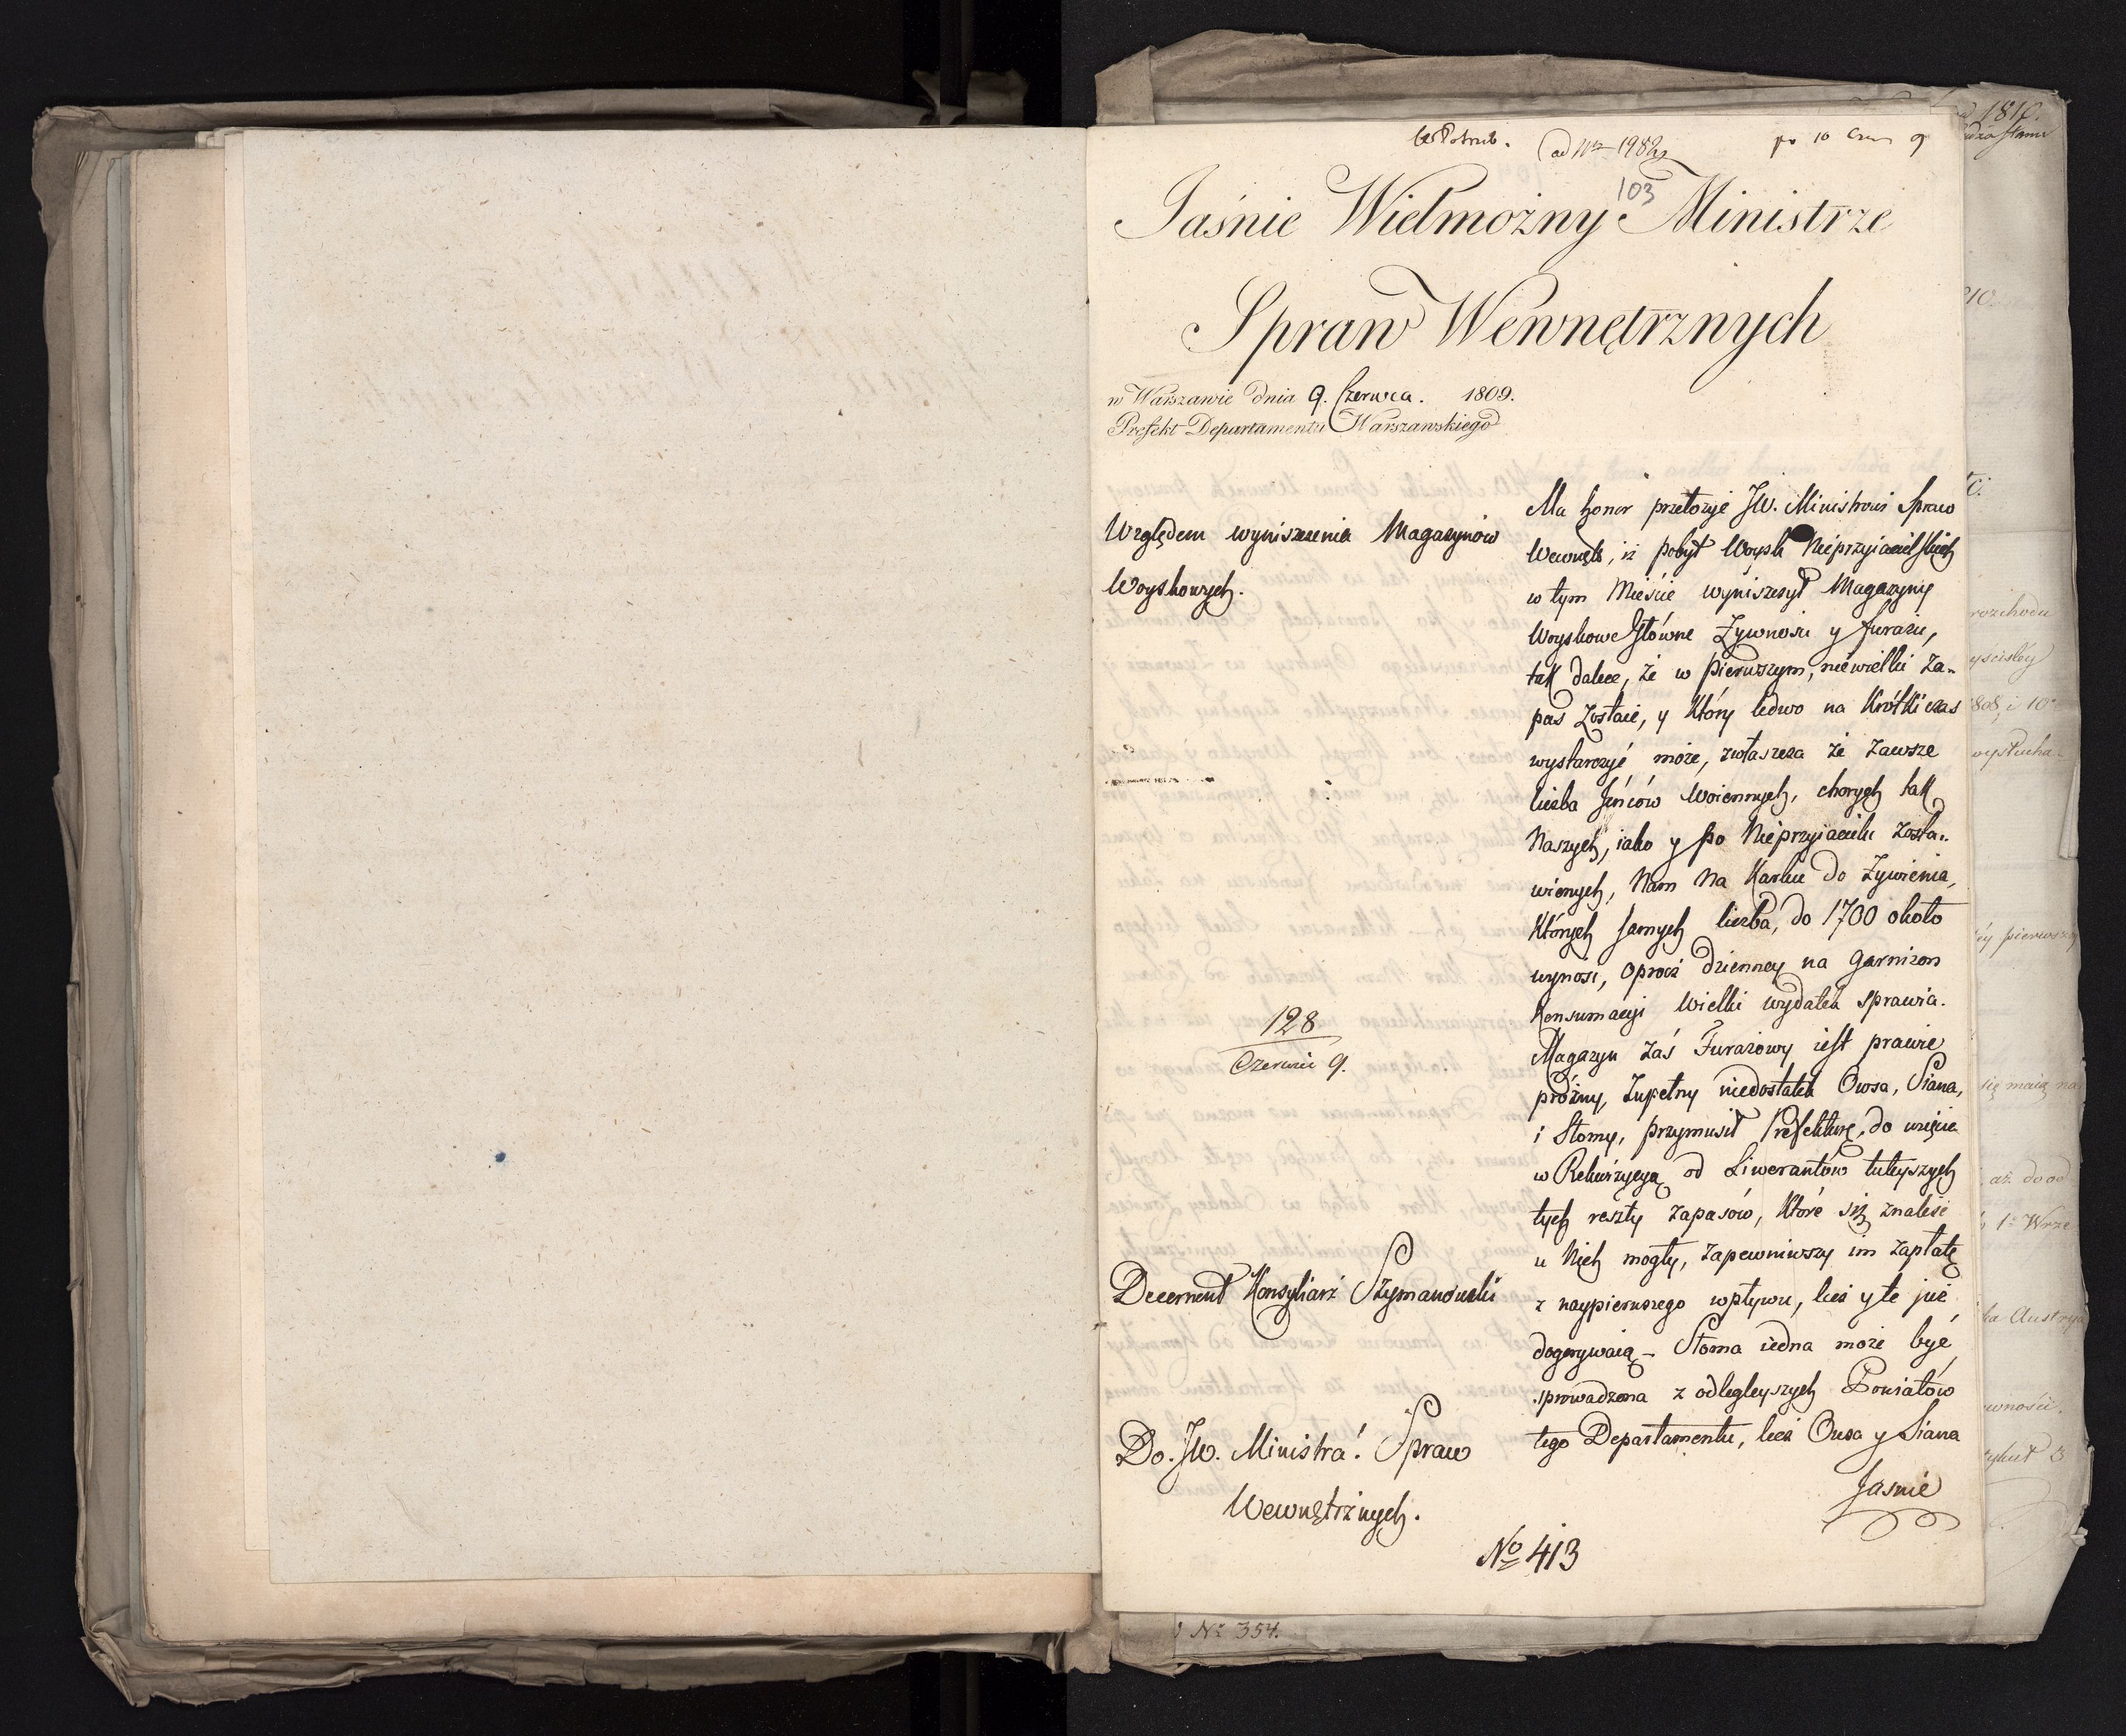 ad Nr 1982
po 10 Czer 9
103
Jaśnie Wielmożny Ministrze
Spraw Wewnętrznych
w Warszawie dnia 9. Czerwca. 1809.
Prefekt Departamentu Warszawskiego
Względem wyniszczenia Magazynow
Woyskowych.
128
Czerwca 9.
Decernent Konsyliarz Szymanowski
Do JW. Ministra Spraw
Wewnętrznych.
Ma honor przełożyć JW. Ministrowi Spraw
Wewnętr, iż pobyt Woysk Nieprzyiacielskich
w tym Mieście wyniszczył Magazyny
Woyskowe Główne Żywności y furażu,
tak dalece, że w pierwszym, niewielki za-
pas zostaie, y który ledwo na krótki czas
wystarczyć może, zwłaszcza że zawsze
liczba Jeńców Woiennych, chorych tak
Naszych, iako y po Nieprzyiacielu zosta-
wionych, Nam na Karku do żywienia,
których samych liczba, do 1700 około
wynosi, oprócz dzienney na garnizon
Konsumacyi wielki wydatek sprawia.
Magazyn zaś Furażowy iest prawie
próżny, zupełny niedostatek Owsa, Siana,
i Słomy, przymusił Prefekturę, do wzięcia
w Rekwizycyą od Liwerantów tuteyszych
tych reszty zapasów, które się znaleść
u Nich mogły, zapewniwszy im zapłatę
z naypierwszego wpływu, lecz y te już
dogorywaią - Słoma iedna może być
sprowadzona z odlegleyszych Powiatów
tego Departamentu, lecz Owsa y Siana
Jaśnie
No 413
No 354.
1810.
rozchodu
1808 i 10
pierwszy
się maią na
aż do od
1o Wrze
Austrya